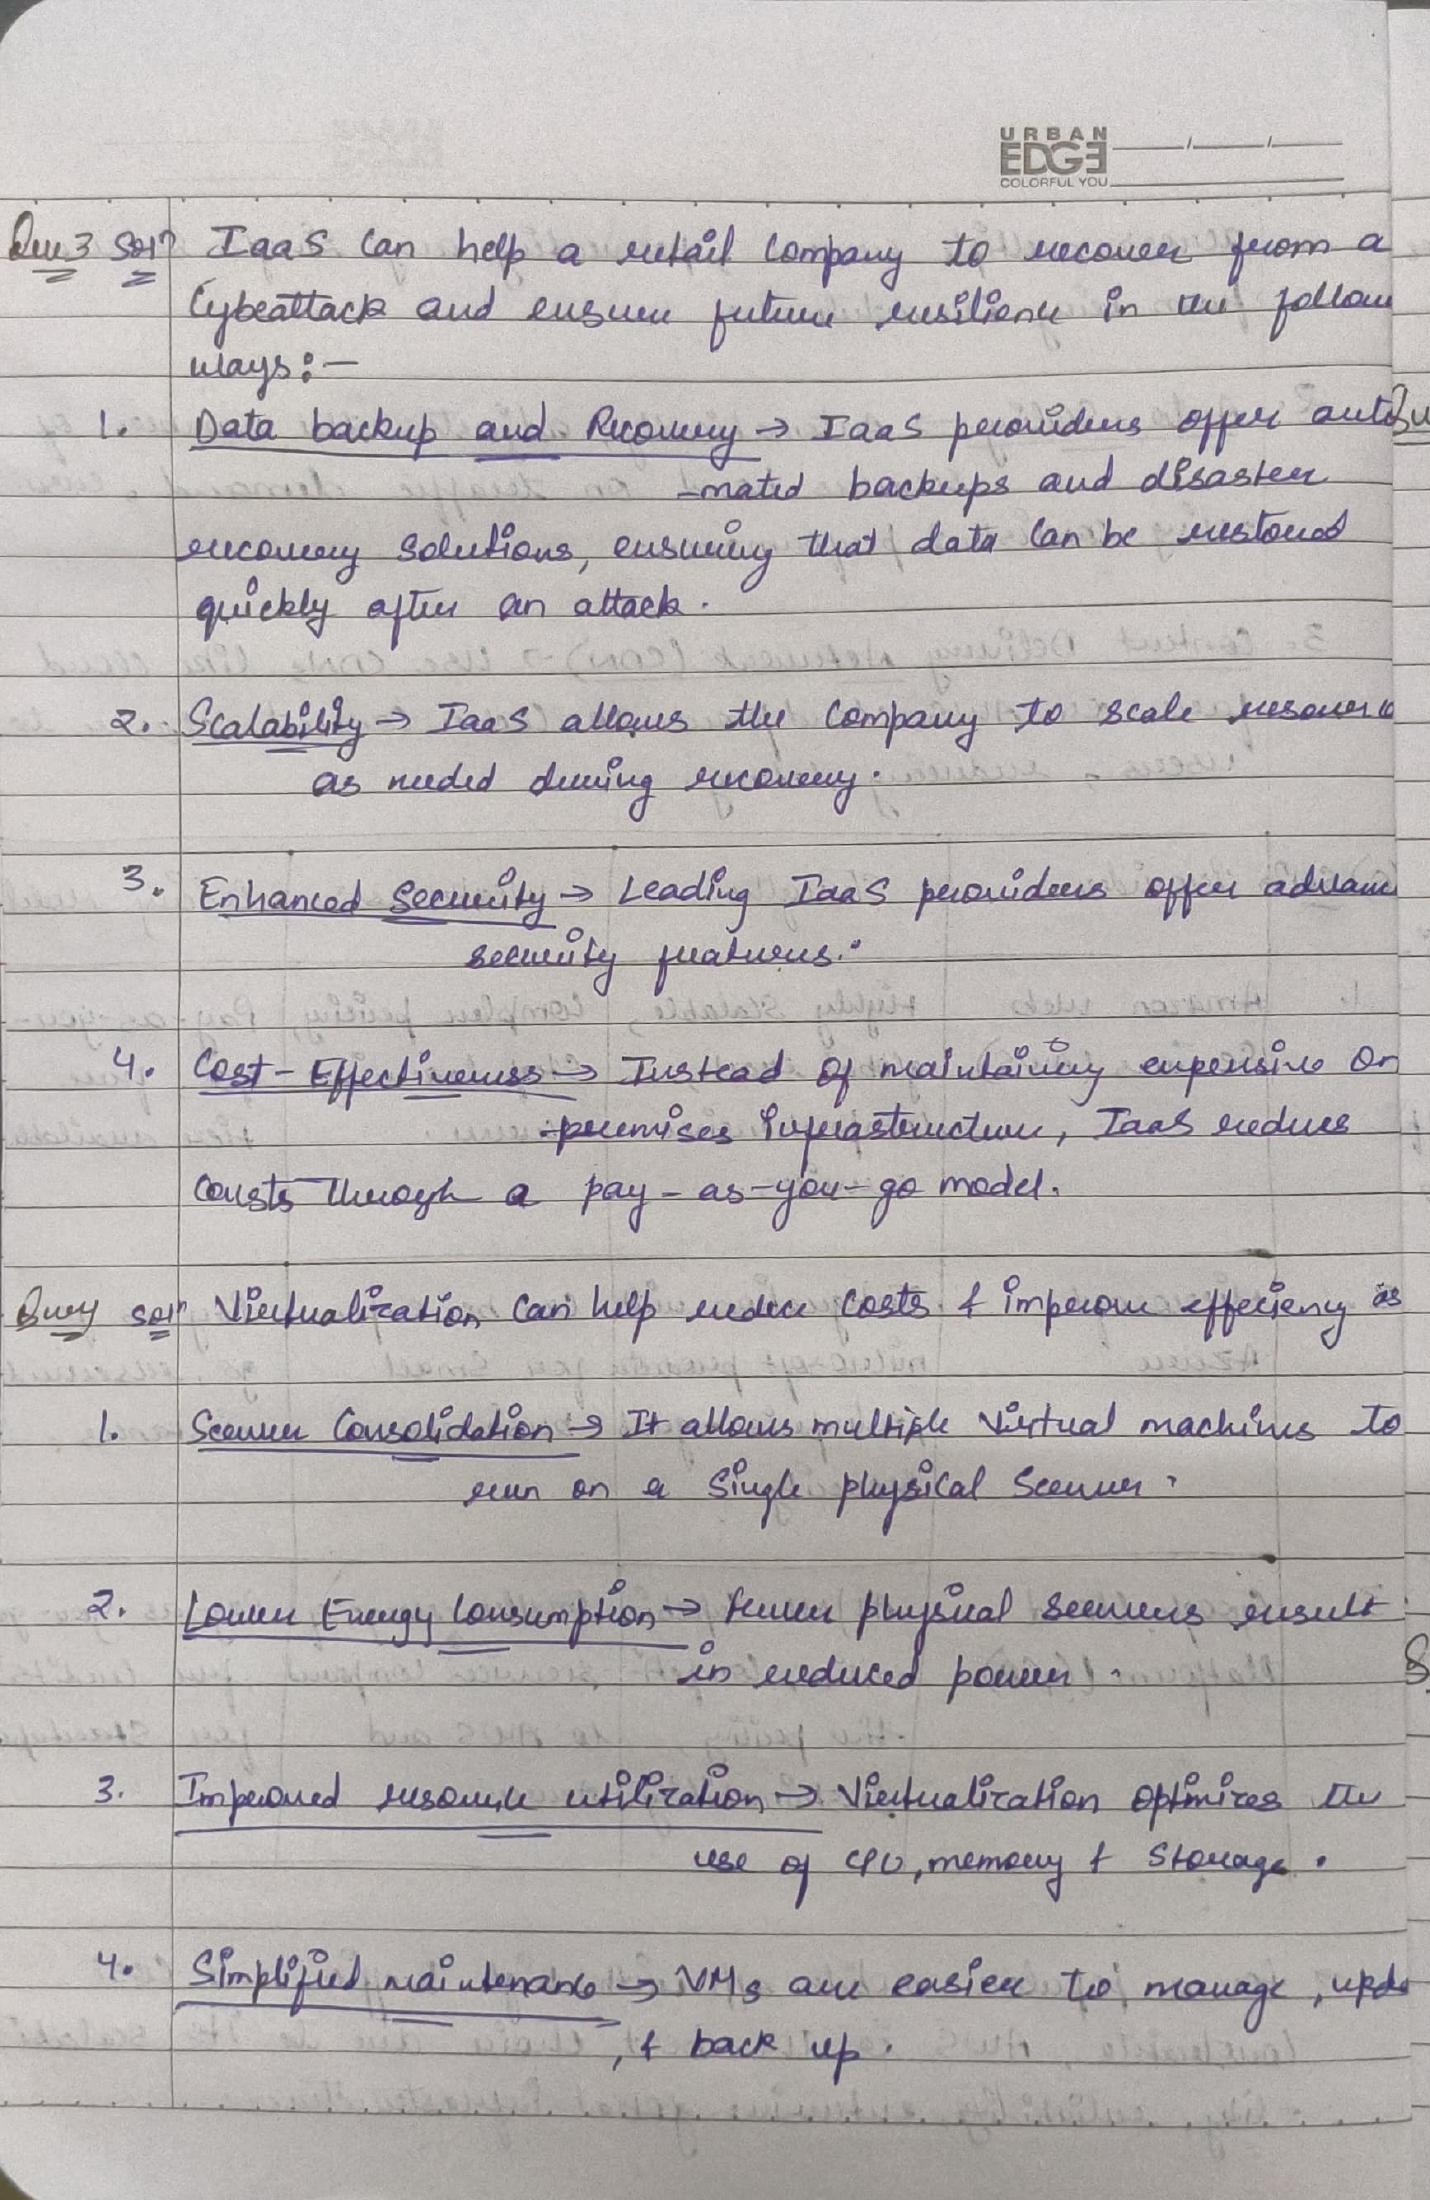 URBAN
EDGE
COLORFUL YOU
Que 3 Solⁿ IaaS can help a retail company to recover from a
Cybeattack and ensure future resilience in the follow
ways:-
1. Data backup and Recovery → IaaS providers offer auto
-mated backups and disaster
recovery solutions, ensuring that data can be restored
quickly after an attack.
2. Scalability → IaaS allows the company to scale resource
as needed during recovery.
3. Enhanced Security → Leading IaaS providers offer advanc
security features.
4. Cost-Effectiveness → Instead of maintaining expensive on
-premises infrastructure, IaaS reduces
Consts through a pay-as-you-go model.
Que 4 Solⁿ Virtualization can help reduce costs & improve effeciency as
1. Server Consolidation → It allows multiple virtual machines to
run on a single physical server.
2. Lower Energy Consumption → fewer physical servers result
in reduced power.
3. Improved resource utilization → Virtualization optimizes the
use of CPU, memory & storage.
4. Simplified maintenance → VMs are easier to manage, upda
, & back up.